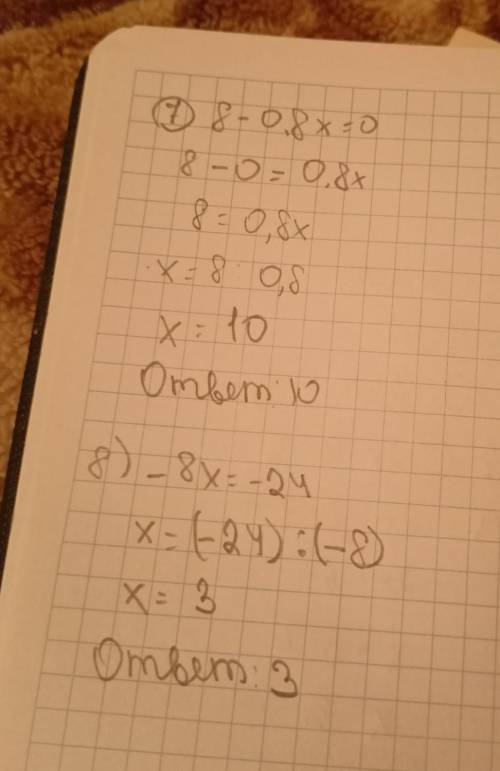 7 8 - 0,8x = 0
8 - 0 = 0,8x
8 = 0,8x
x = 8 : 0,8
x = 10
Ответ: 10
8) - 8x = -24
x = (-24) : (-8)
x = 3
Ответ: 3